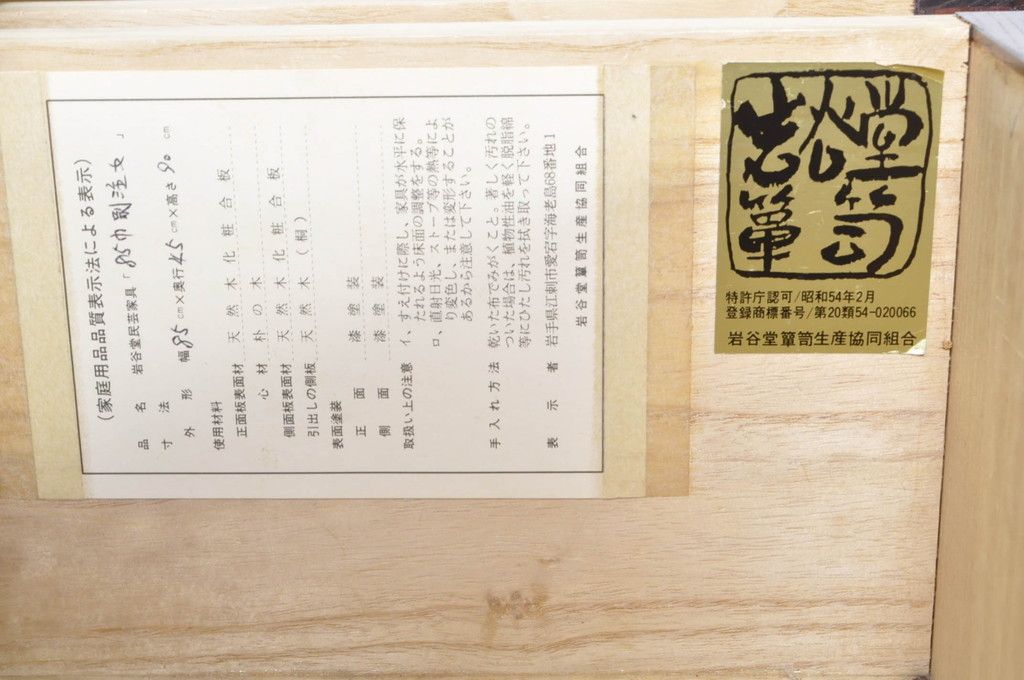 (家庭用品品質表示法による表示)
品名 岩谷堂民芸家具「85巾
寸法
外形 幅85cm×奥行45cm×高さ90cm
使用材料
正面板表面材 天然木化粧合板
心材 朴の木
側面板表面材 天然木化粧合板
引出しの側板 天然木(桐)
表面塗装
正面 漆塗装
側面 漆塗装
取扱い上の注意 イ、すえ付けに際し、家具が水平に保
たれるよう床面の調整をする。
ロ、直射日光、ストーブ等の熱等によ
り変色し、または変形することが
あるから注意して下さい。
手入れ方法 乾いた布でみがくこと。著しく汚れの
ついた場合は、植物性油を軽く脱脂綿
等にひたし汚れを拭き取って下さい。
表示者 岩手県江刺市愛宕字海老島68番地1
岩谷堂簞笥生産協同組合
岩谷堂簞笥
特許庁認可/昭和54年2月
登録商標番号/第20類54-020066
岩谷堂簞笥生産協同組合